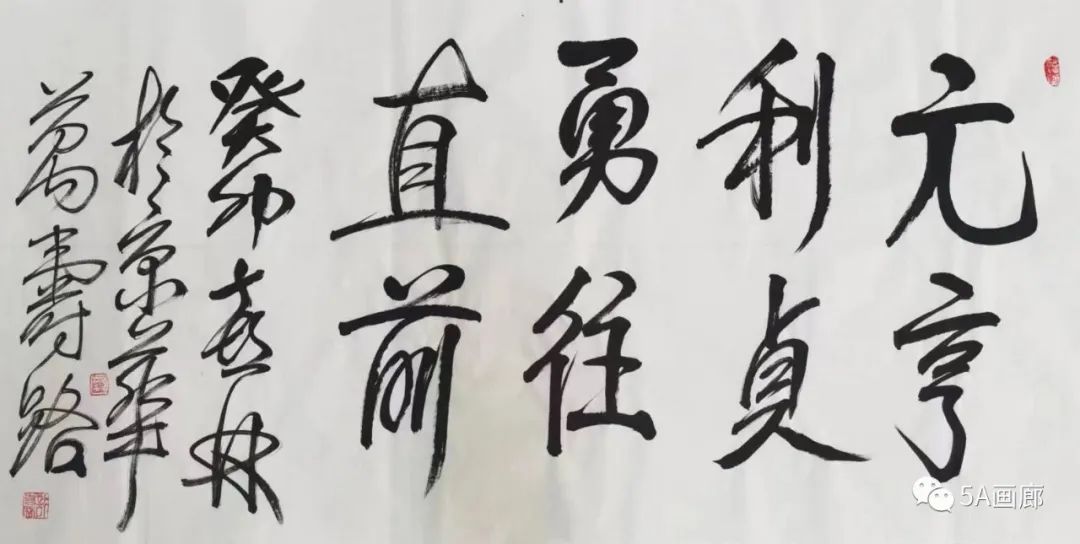 元亨
利貞
勇往
直前
癸卯喜林
於京華
萬壽路
5A画廊